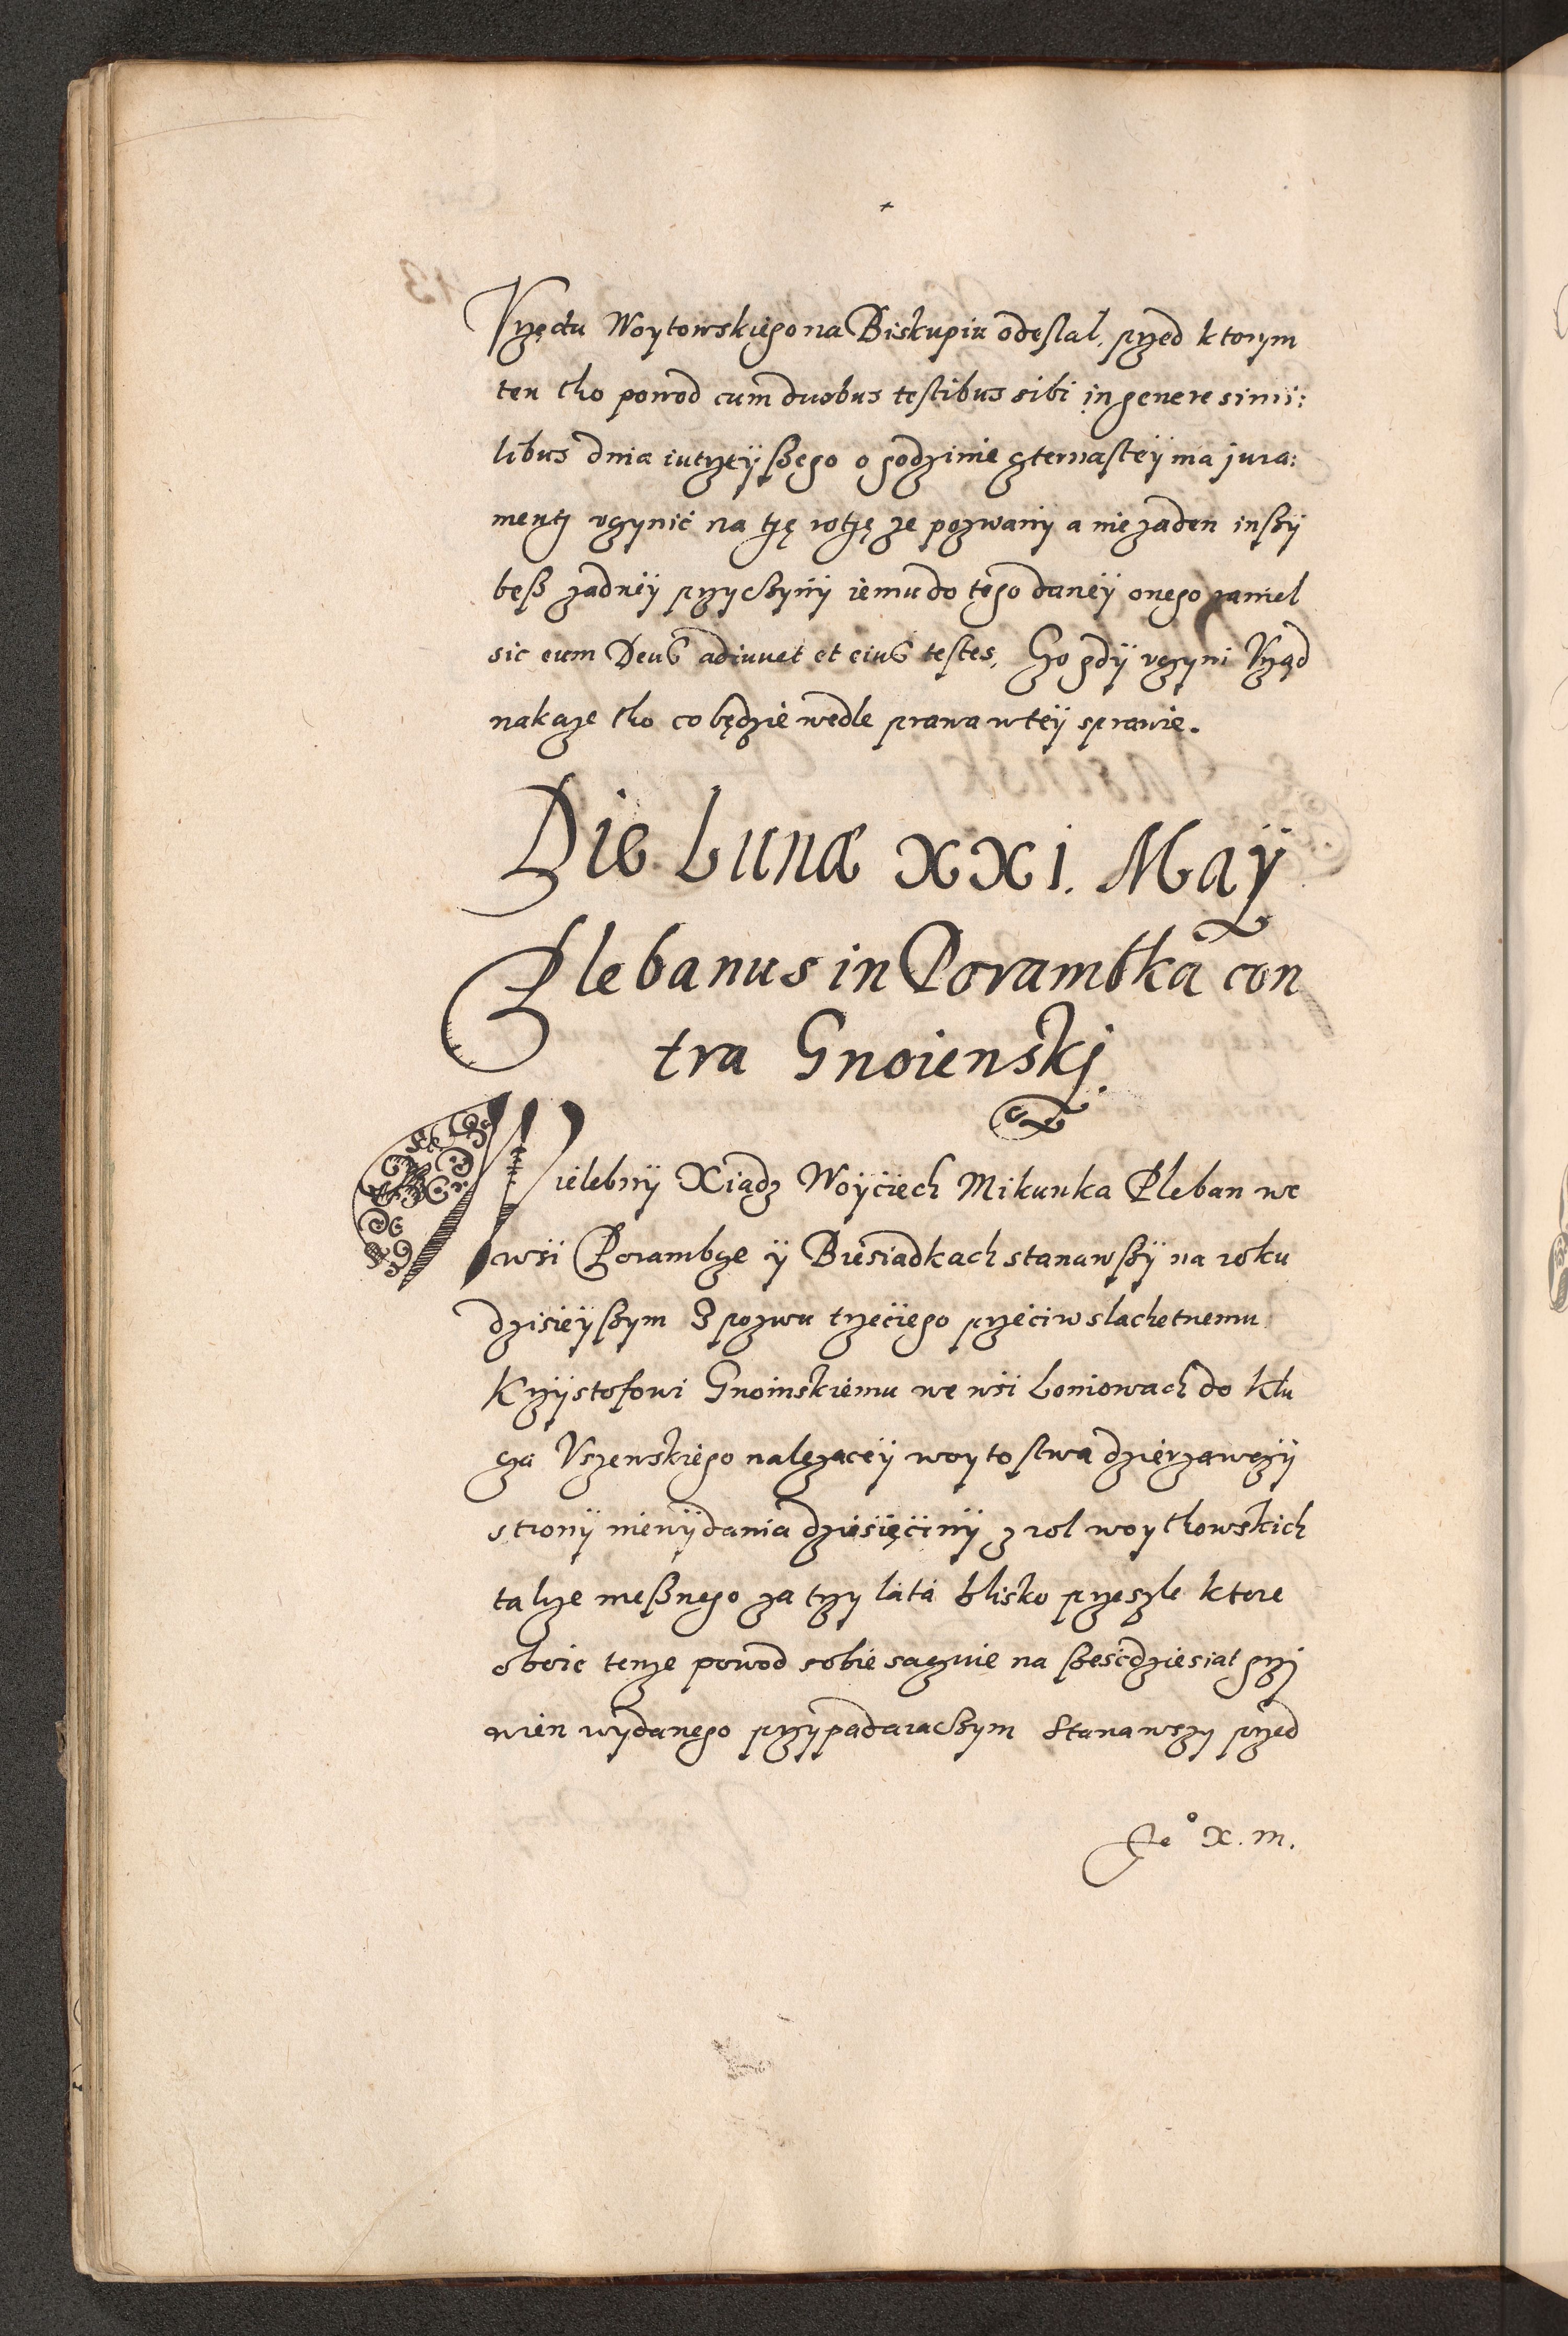 Vrzędu Woytowskiego na Biskupiu odesłał, przed ktorym
ten tho powod cum duobus testibus sibi in genere simi:
libus dnia iutrzeÿßego o godzinie czternasteÿ ma jura:
mentj vczynić na tę rotę że pozwanÿ a nie żaden inßÿ
beß żadneÿ przyczynÿ iemu do tego daneÿ onego raniel
sic eum Deus adiuuet et eius testes, Czo gdÿ vczyni Vrząd
nakaże tho co będzie wedle prawa w teÿ sprawie.
Die Lunæ XXI. Maÿ
Plebanus in Porambka con
tra Gnoienskj.
Wielebnÿ Xiądz Woÿciech Mikunka Pleban we
wsi Porambze ÿ Biesiadkach stanawßÿ na roku
dzisieÿßym Z pozwu trzeciego przeciw slachetnemu
Krzÿstofowi Gnoinskiemu we wsi Loniowach do Klu
cza Vszewskiego należaceÿ woytostwa dzierzawczÿ
stronÿ niewÿdania dziesięcinÿ z rol woythowskich
takze meßnego za trzy lata blisko przeszłe ktore
oboie tenze powod sobie saczuie na sześcdziesiat grzÿ
wien wÿdanego przÿpadaiaczym Stanawszy przed
Je° X. m.